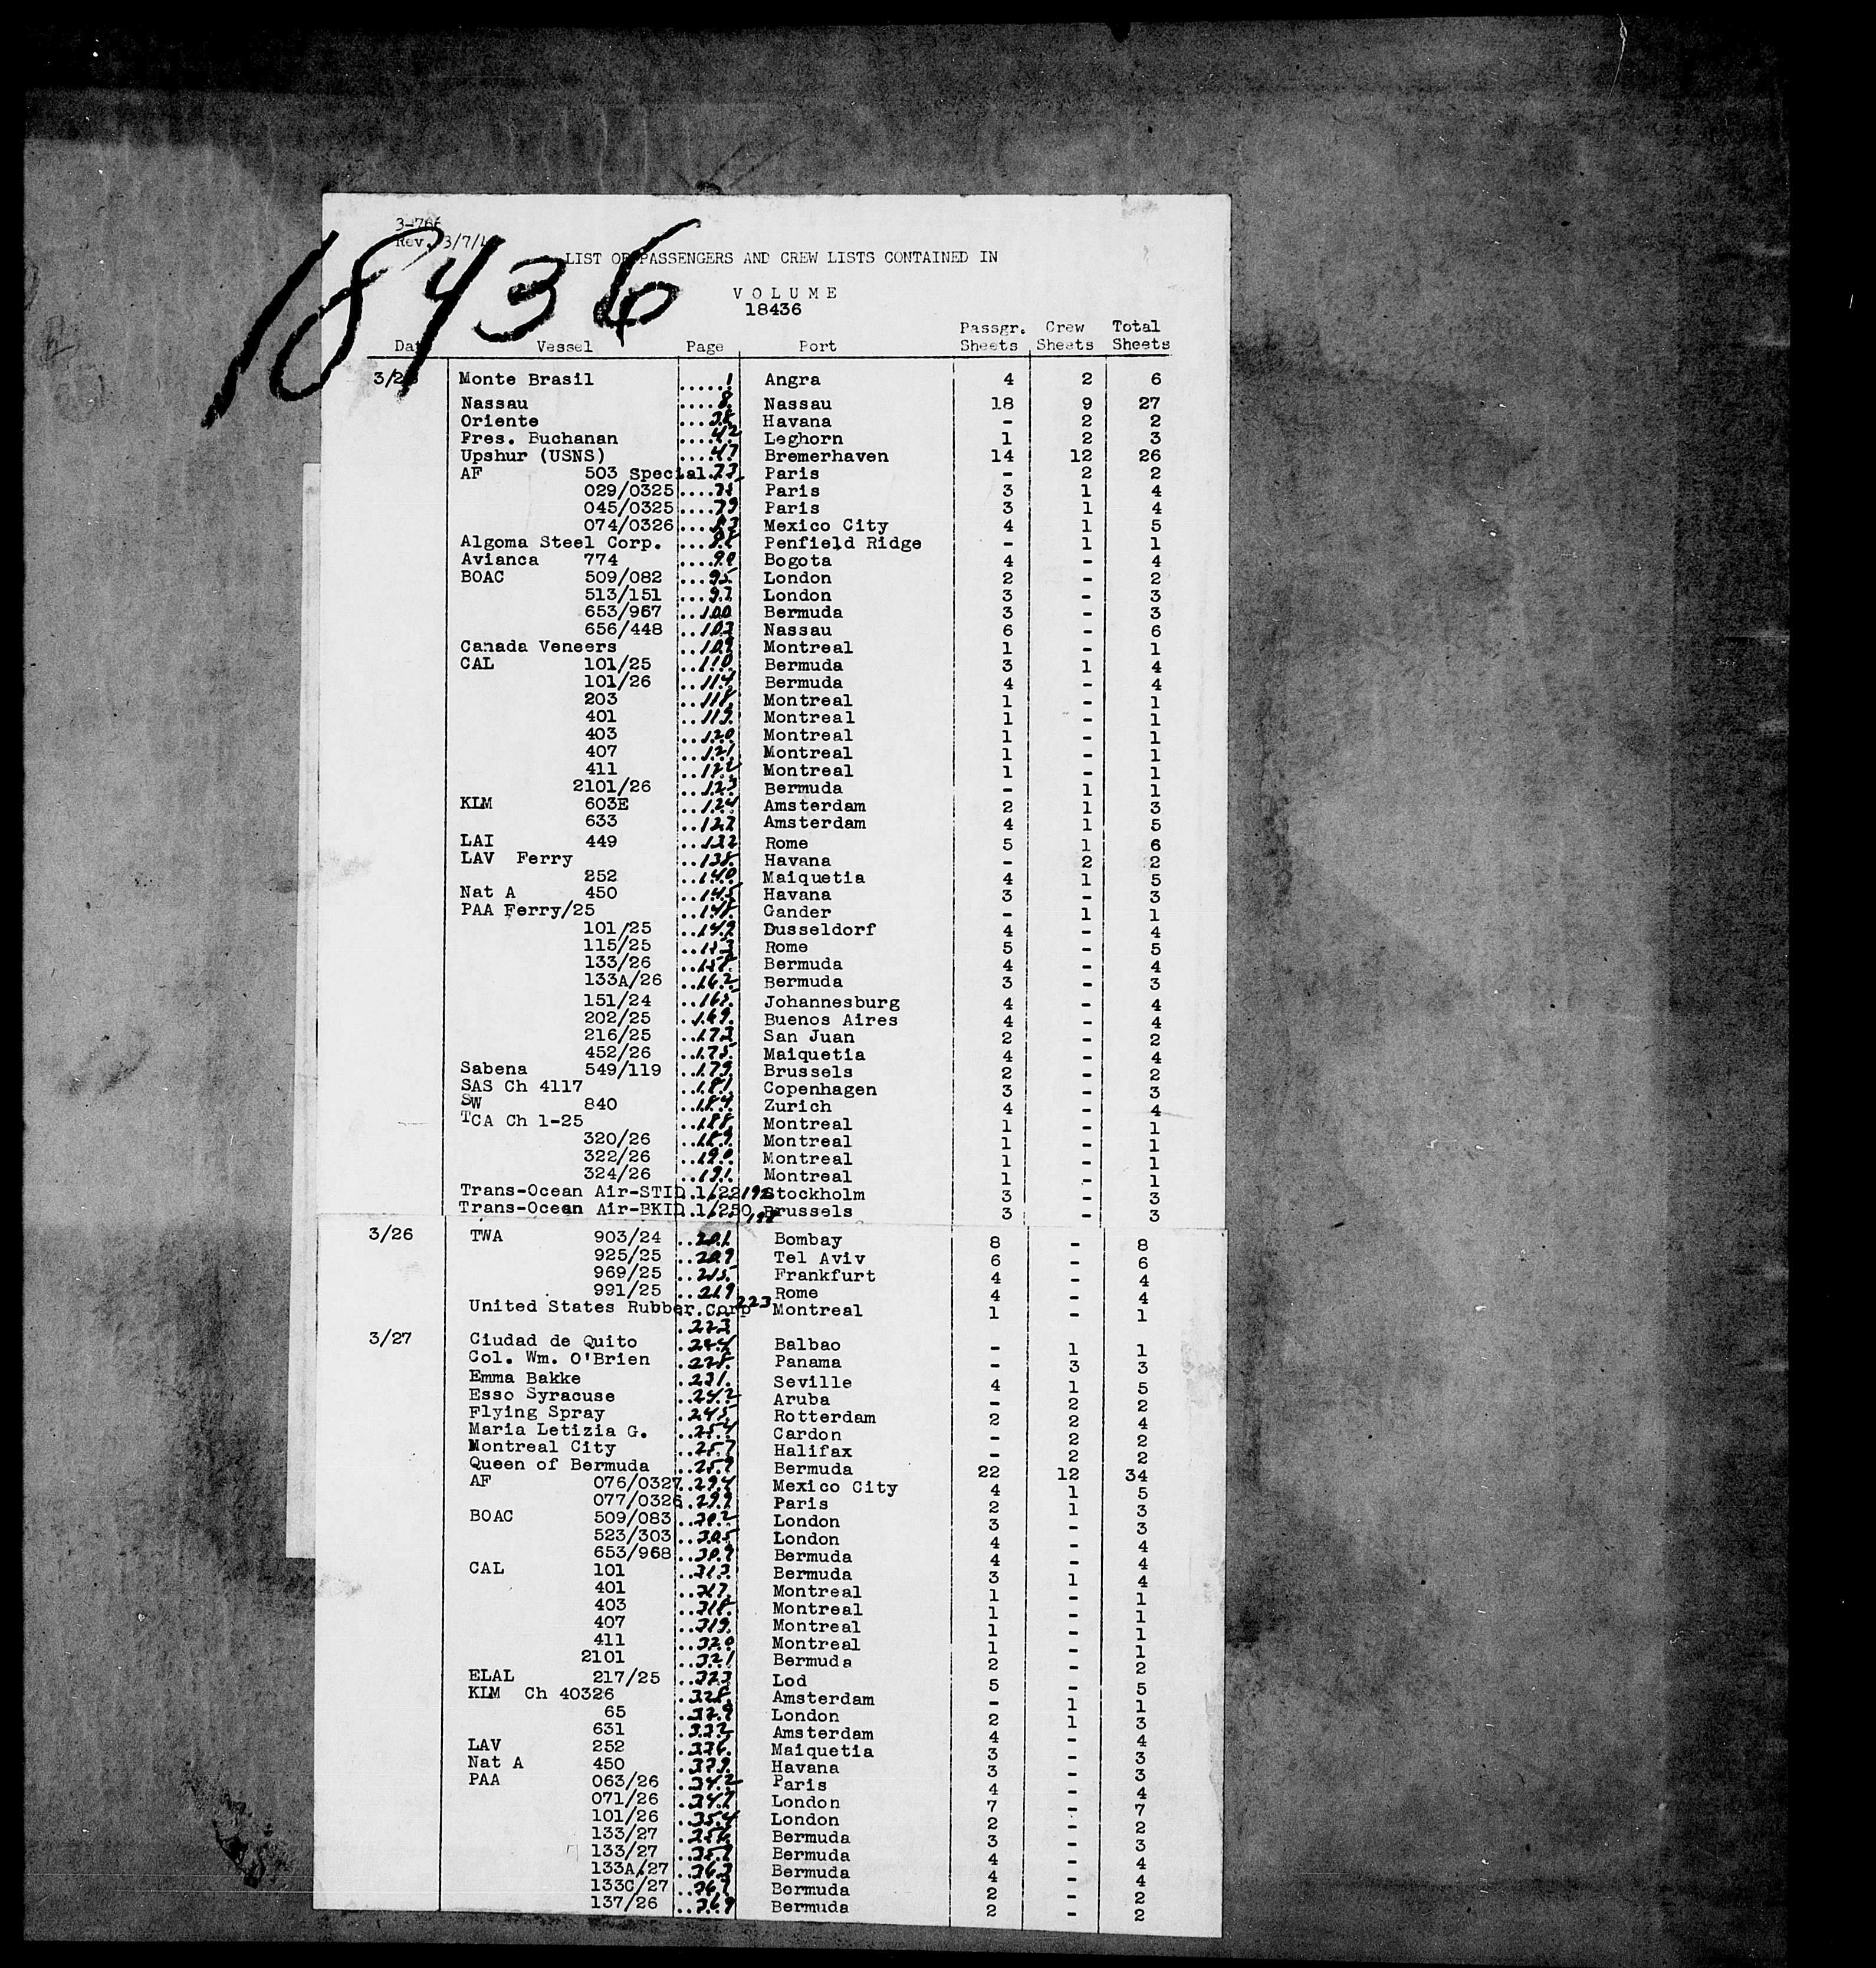 18436
3-766
Rev. 3/7/
LIST OF PASSENGERS AND CREW LISTS CONTAINED IN
VOLUME
18436
Date Vessel Page Port Passgr. Sheets Crew Sheets Total Sheets
3/26 Monte Brasil .....1 Angra 4 2 6
Nassau .... Nassau 18 9 27
Oriente .... Havana - 2 2
Pres. Buchanan ....42 Leghorn 1 2 3
Upshur (USNS) ....47 Bremerhaven 14 12 26
AF 503 Special.73 Paris - 2 2
029/0325....75 Paris 3 1 4
045/0325....79 Paris 3 1 4
074/0326....83 Mexico City 4 1 5
Algoma Steel Corp. .... Penfield Ridge - 1 1
Avianca 774 ....90 Bogota 4 - 4
BOAC 509/082 ....95 London 2 - 2
513/151 ....97 London 3 - 3
653/967 ..100 Bermuda 3 - 3
656/448 ..103 Nassau 6 - 6
Canada Veneers ..109 Montreal 1 - 1
CAL 101/25 ..110 Bermuda 3 1 4
101/26 ..114 Bermuda 4 - 4
203 ..118 Montreal 1 - 1
401 ..119 Montreal 1 - 1
403 ..120 Montreal 1 - 1
407 ..121 Montreal 1 - 1
411 ..122 Montreal 1 - 1
2101/26 ..123 Bermuda - 1 1
KLM 603E ..124 Amsterdam 2 1 3
633 ..127 Amsterdam 4 1 5
LAI 449 ..132 Rome 5 1 6
LAV Ferry ..138 Havana - 2 2
252 ..140 Maiquetia 4 1 5
Nat A 450 ..145 Havana 3 - 3
PAA Ferry/25 ..148 Gander - 1 1
101/25 ..149 Dusseldorf 4 - 4
115/25 ..153 Rome 5 - 5
133/26 ..158 Bermuda 4 - 4
133A/26 ..162 Bermuda 3 - 3
151/24 ..165 Johannesburg 4 - 4
202/25 ..169 Buenos Aires 4 - 4
216/25 ..173 San Juan 2 - 2
452/26 ..175 Maiquetia 4 - 4
Sabena 549/119 ..179 Brussels 2 - 2
SAS Ch 4117 ..181 Copenhagen 3 - 3
SW 840 ..184 Zurich 4 - 4
TCA Ch 1-25 ..188 Montreal 1 - 1
320/26 ..189 Montreal 1 - 1
322/26 ..190 Montreal 1 - 1
324/26 ..191 Montreal 1 - 1
Trans-Ocean Air-STID.1/22 192 Stockholm 3 - 3
Trans-Ocean Air-BKID.1/250 198 Brussels 3 - 3
3/26 TWA 903/24 ..201 Bombay 8 - 8
925/25 ..209 Tel Aviv 6 - 6
969/25 ..215 Frankfurt 4 - 4
991/25 ..219 Rome 4 - 4
United States Rubber Corp 223 Montreal 1 - 1
.223
3/27 Ciudad de Quito .224 Balbao - 1 1
Col. Wm. O'Brien .228 Panama - 3 3
Emma Bakke .231. Seville 4 1 5
Esso Syracuse .242 Aruba - 2 2
Flying Spray .245 Rotterdam 2 2 4
Maria Letizia G. ..254 Cardon - 2 2
Montreal City ..257 Halifax - 2 2
Queen of Bermuda ..259 Bermuda 22 12 34
AF 076/0327.294 Mexico City 4 1 5
077/0326.299 Paris 2 1 3
BOAC 509/083..302 London 3 - 3
523/303..305 London 4 - 4
653/968..309 Bermuda 4 - 4
CAL 101 ..313 Bermuda 3 1 4
401 ..317 Montreal 1 - 1
403 ..318 Montreal 1 - 1
407 ..319 Montreal 1 - 1
411 ..320 Montreal 1 - 1
2101 ..321 Bermuda 2 - 2
ELAL 217/25 ..323 Lod 5 - 5
KLM Ch 40326 ..328 Amsterdam - 1 1
65 ..329 London 2 1 3
631 ..332 Amsterdam 4 - 4
LAV 252 ..336 Maiquetia 3 - 3
Nat A 450 ..339 Havana 3 - 3
PAA 063/26 ..342 Paris 4 - 4
071/26 ..347 London 7 - 7
101/26 ..354 London 2 - 2
133/27 ..356 Bermuda 3 - 3
133/27 ..359 Bermuda 4 - 4
133A/27 ..363 Bermuda 4 - 4
133C/27 ..367 Bermuda 2 - 2
137/26 ..369 Bermuda 2 - 2